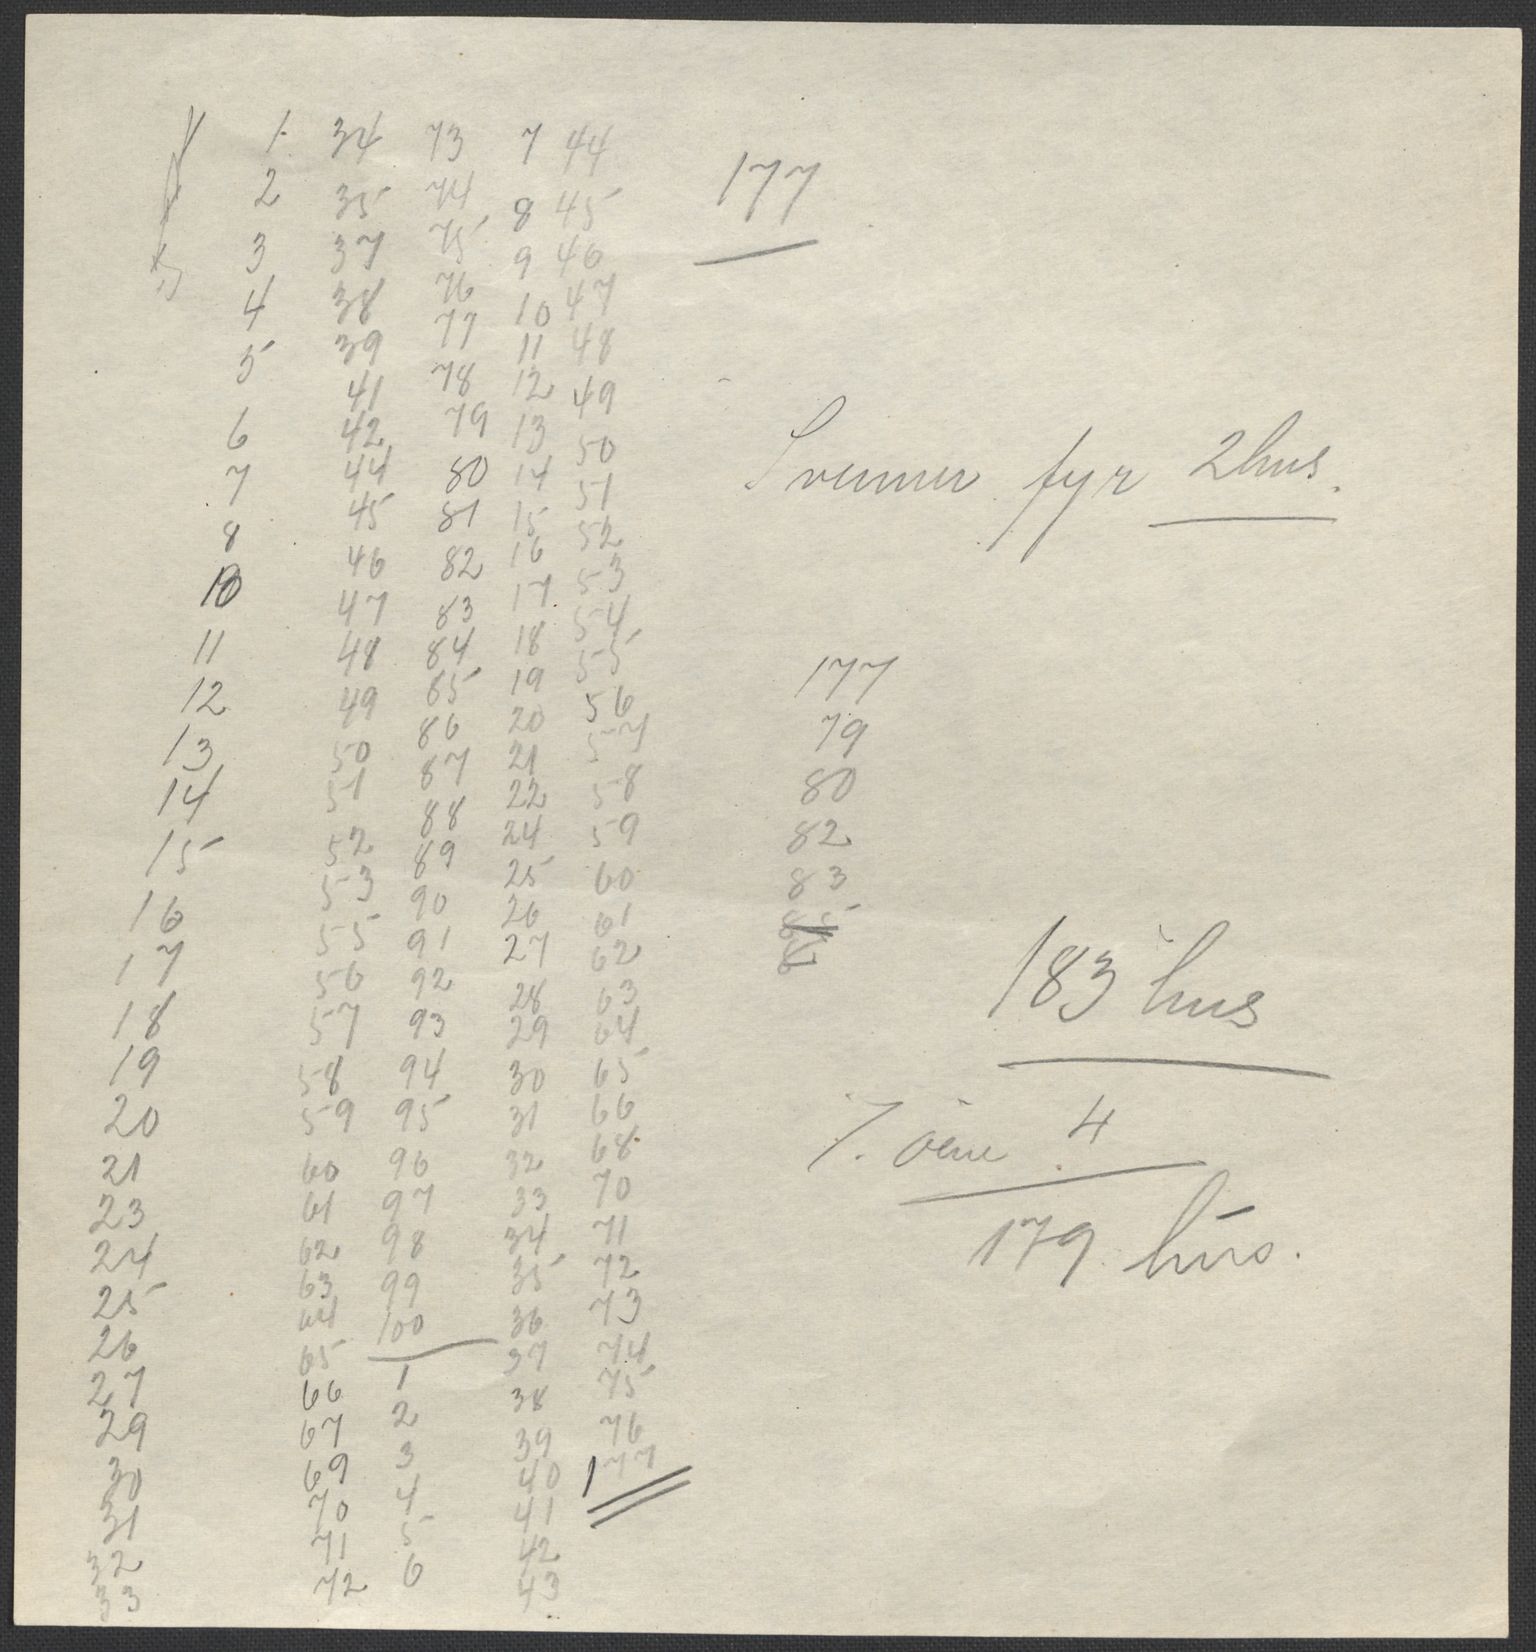 1
2
3
4
5
6
7
8
10
11
12
13
14
15
16
17
18
19
20
21
23
24
25
26
27
29
30
31
32
33
34
35
37
38
39
41
42
44
45
46
47
48
49
50
51
52
53
55
56
57
58
59
60
61
62
63
64
65
66
67
69
70
71
72
73
74
75
76
77
78
79
80
81
82
83
84
85
86
87
88
89
90
91
92
93
94
95
96
97
98
99
100
1
2
3
4
5
6
7
8
9
10
11
12
13
14
15
16
17
18
19
20
21
22
24
25
26
27
28
29
30
31
32
33
34
35
36
37
38
39
40
41
42
43
44
45
46
47
48
49
50
51
52
53
54
55
56
57
58
59
60
61
62
63
64
65
66
68
70
71
72
73
74
75
76
177
177
Svenner fyr 2 hus.
177
79
80
82
83
183 hus
4
179 hus.